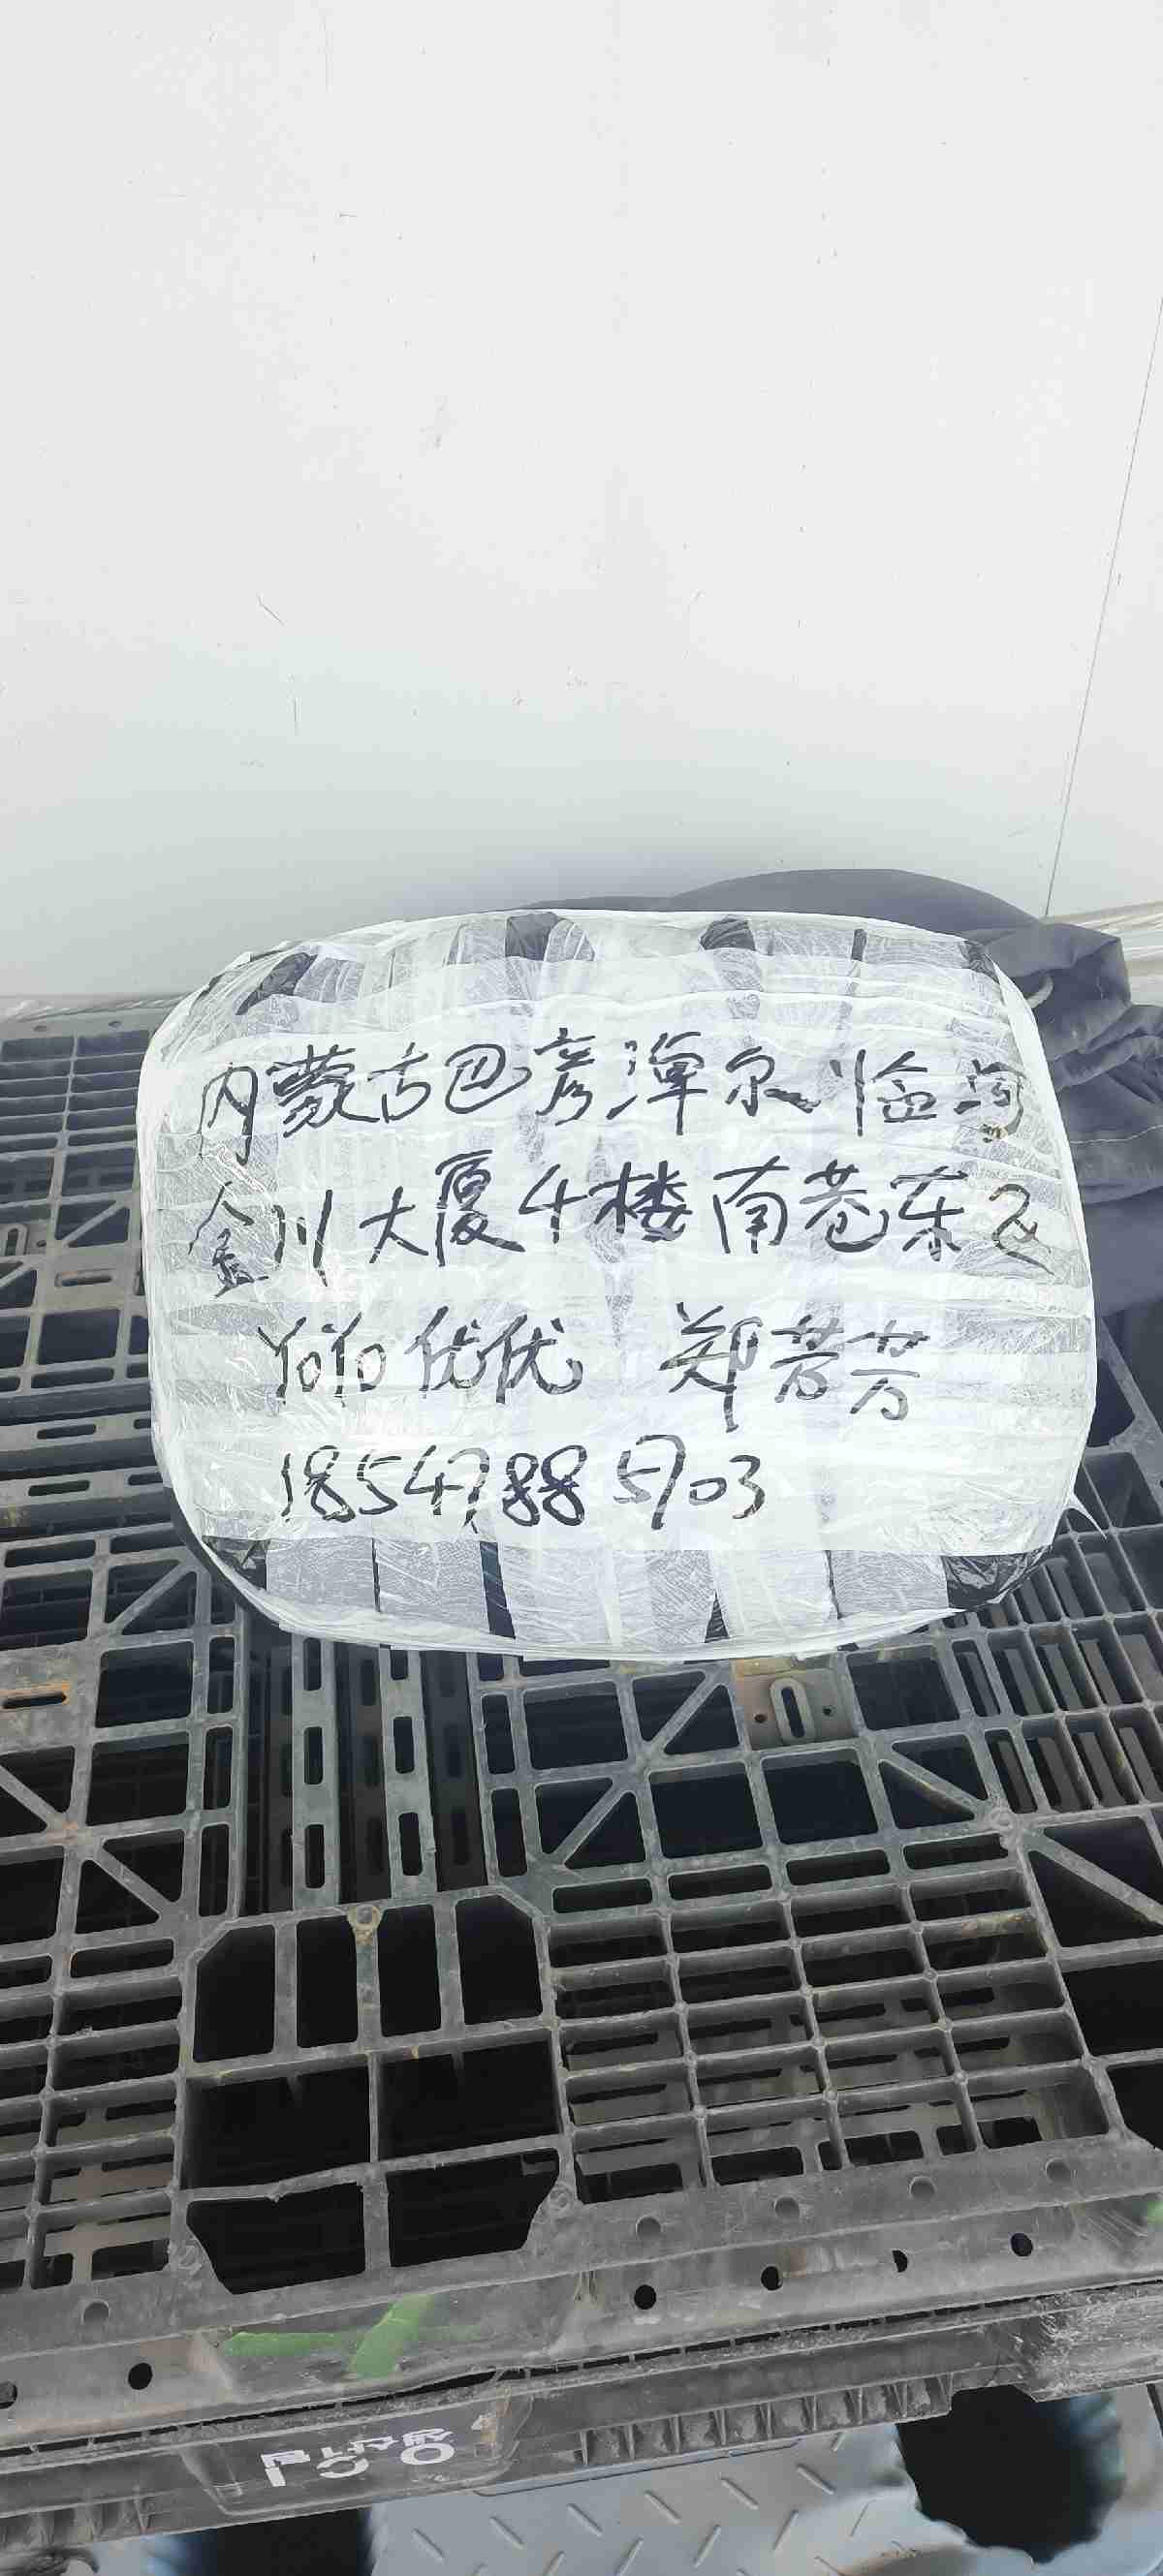 内蒙古巴彦淖尔临河
金川大厦4楼南巷东区
yoyo优优 郑芳芳
18547885703